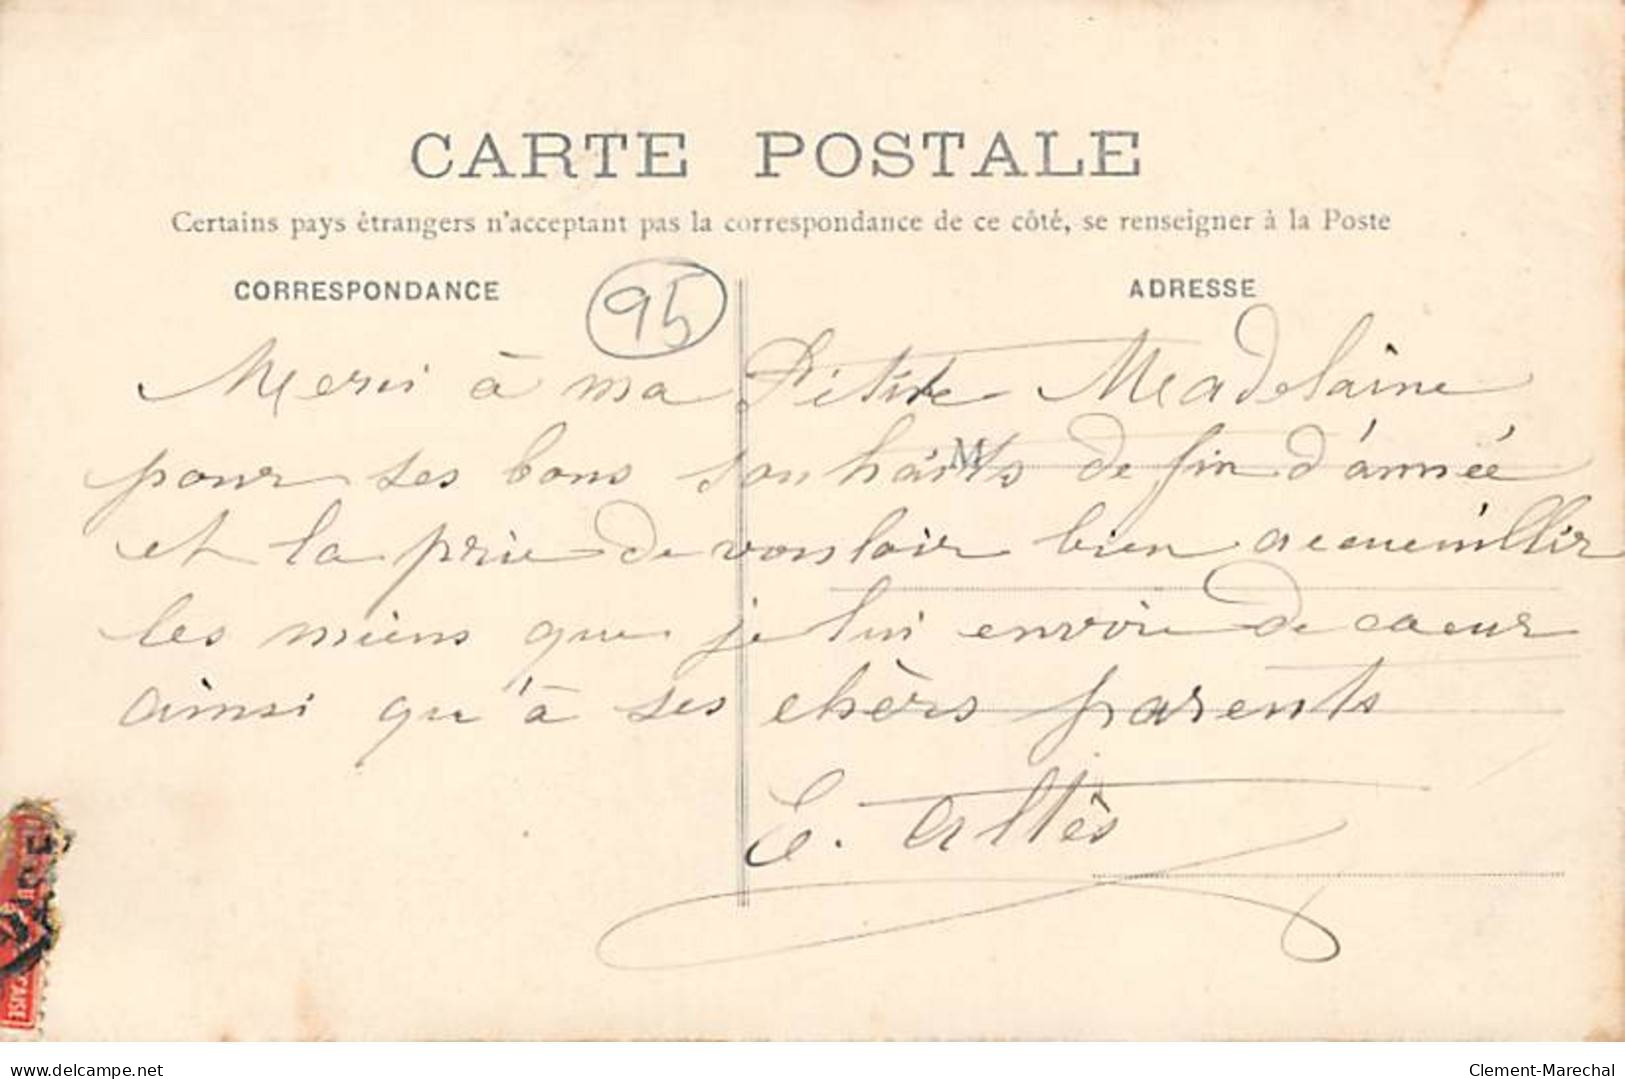 CARTE POSTALE
Certains pays étrangers n'acceptant pas la correspondance de ce côté, se renseigner à la Poste
CORRESPONDANCE
95
ADRESSE
Merci à ma Petite Madelaine
pour ses bons souhaits de fin d'année
M
et la prie de vouloir bien accueuillir
les miens que je lui envoie de coeur
ainsi qu'à ses chèrs parents
E. Altès
CAISE
www.delcampe.net
Clement-Marechal